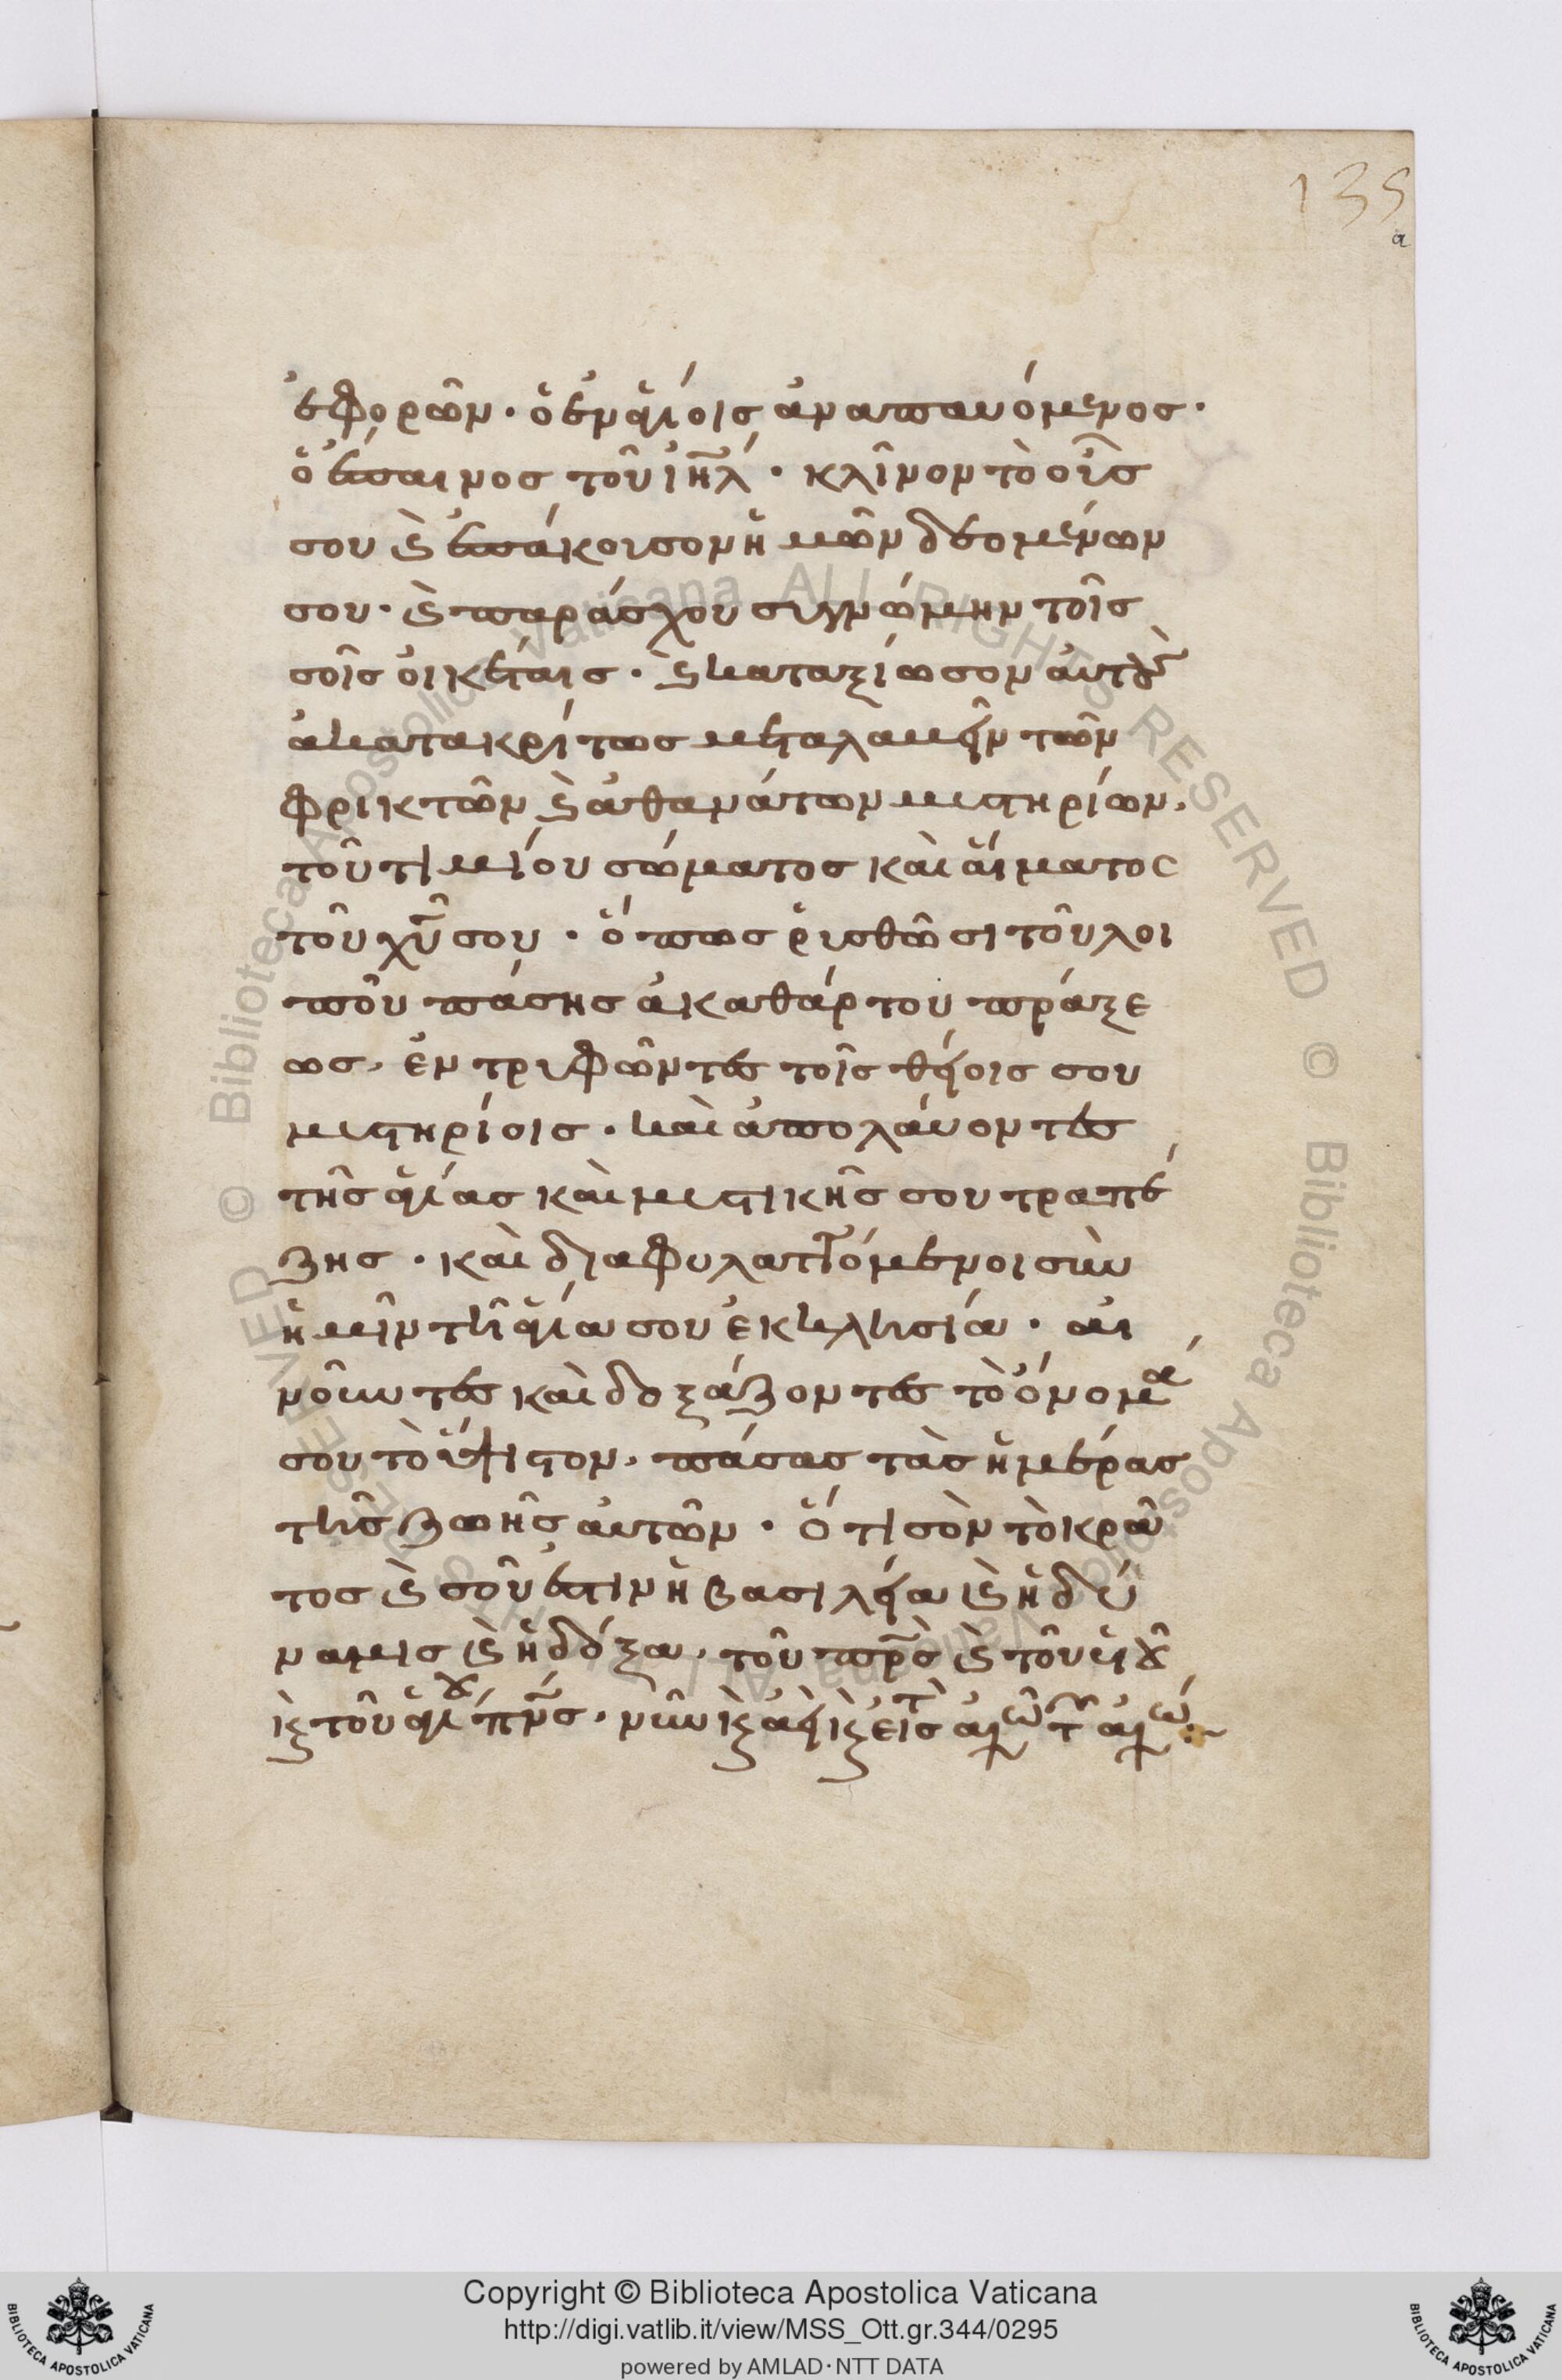 135
a
ἐφορῶν· ὁ ἐν ἁγίοις ἀναπαυόμενος·
ὁ ἔπαινος τοῦ ἰηλ· κλῖνον τὸ οὖς
σου καὶ ἐπάκουσον ἡμῶν δεομένων
σου· καὶ παράσχου συγνώμην τοῖς
σοῖς οἰκέταις· καὶ καταξίωσον αὐτοὺς
ἀκατακρίτως μεταλαμεῖν τῶν
φρικτῶν καὶ ἀθανάτων μυστηρίων,
τοῦ τιμίου σώματος καὶ αἵματος
τοῦ χυ σου· ὅπως ῥυσθῶσι τοῦ λοι
ποῦ πάσης ἀκαθάρτου πράξε
ως, ἐντρυφῶντες τοῖς θείοις σου
μυστηρίοις· καὶ ἀπολάυοντες
τῆς ἁγίας καὶ μυστικῆς σου τραπέ
ζης· καὶ διαφυλαττόμενοι σὺν
ἡμῖν τῇ ἁγία σου ἐκκλησία· αἰ
νοῦντες καὶ δοξάζοντες τὸ ὄνομα
σου τὸ ὕψιστον, πάσας τὰς ἡμέρας
τῆς ζωῆς αὐτῶν· ὅτι σὸν τὸ κρά
τος καὶ σοῦ ἐστιν ἡ βασιλεία καὶ ἡ δύ
ναμις καὶ ἡ δόξα, τοῦ πρς καὶ τοῦ υἱοῦ
καὶ τοῦ ἁγίου πνς· νῦν καὶ ἀεὶ καὶ εἰς τοὺς αἰῶ τῶν αἰώ
© Biblioteca Apostolica Vaticana ALL RIGHTS RESERVED © Biblioteca Apostolica Vaticana ALL RIGHTS RESERVED
BIBLIOTECA APOSTOLICA VATICANA
Copyright © Biblioteca Apostolica Vaticana
http://digi.vatlib.it/view/MSS_Ott.gr.344/0295
powered by AMLAD·NTT DATA
BIBLIOTECA APOSTOLICA VATICANA